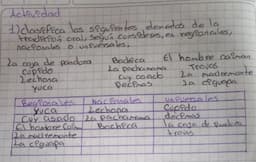 Actividad
1) clasifica los siguientes elementos de la
tradición oral según consideres, es regionales,
nacionales o universales.
La caja de pandora Bochica El hombre caiman
Cupido La pachamama
Lechona Cuy asado La madremonte
yuca Decimas La ciguepa
Regionales nacionales universales
yuca Lechona Cupido
Cuy asado La pachamama decimas
El hombre Caiman Bochica la caja de
La madremonte
La ciguepa